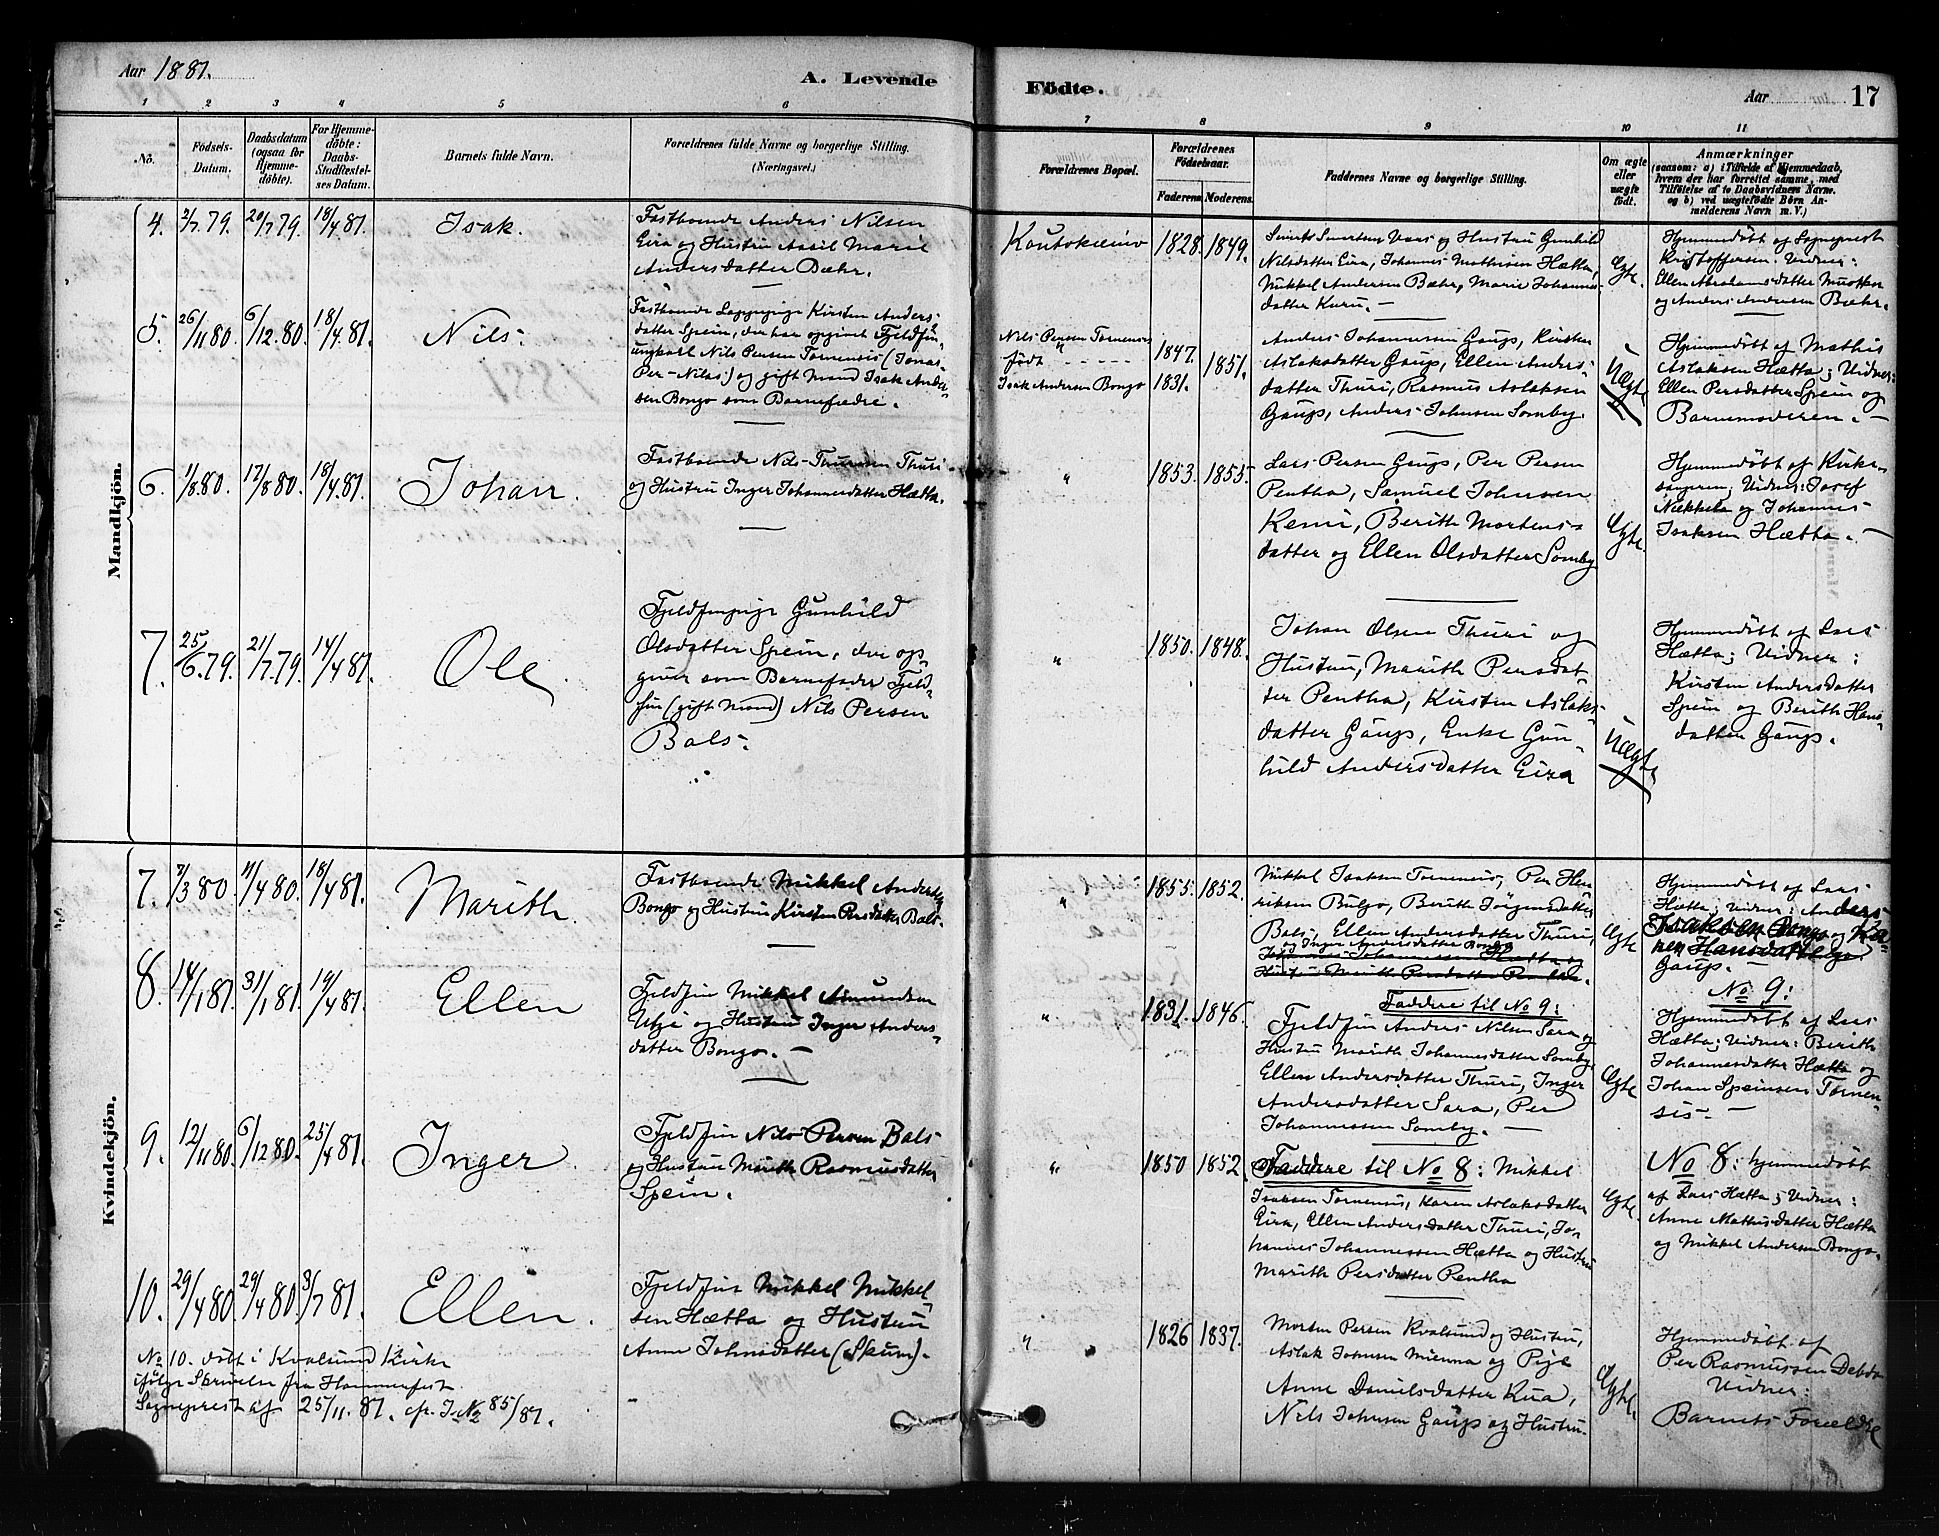 Aar 1881.
A. Levende Födte.
Aar 17
1 2 3 4 5 6 7 8 9 10 11
No.
Födsels-Datum.
Daabsdatum (ogsaa for Hjemme-döbte).
For Hjemme-döbte: Daabs-Stadfæstel-ses Datum.
Barnets fulde Navn.
Forældrenes fulde Navne og borgerlige Stilling. (Næringsvei.)
Forældrenes Bopæl.
Forældrenes Födselsaar.
Faderens Moderens
Faddernes Navne og borgerlige Stilling.
Om ægte eller uægte födt.
Anmærkninger
(saasom: a) i Tilfælde af Hjemmedaab,
hvem der har forrettet samme, med
Tilföielse af to Daabsvidners Navne.
og b) ved uægtefödte Börn An-
melderens Navn m. V.)
Mandkjön.
4. 2/7 79. 20/7 79. 18/4 81. Isak.
Fastboende Anders Nilsen
Eira og Hustru Aasil Marie
Andersdatter Bæhr.
Koutokeino 1828. 1849.
Nilsdatter Eira, Johannes Mathisen Hætta,
Mikkel Andersen Bæhr, Marie Johannes-
datter Kuru. —
Ægte.
Hjemmedöbt af Sogneprest
Kristoffersen. Vidner:
Ellen Abrahamsdatter Muotka
og Anders Andersen Bæhr.
5. 26/11 80. 6/12 80. 18/4 81. Nils.
Fastboende Loppigige Kirsten Anders-
datter Spein, der har opgivet Fjeldfin
ungkarl Nils Persen Tornensis (Jonas-
Per-Nilas) og gift Mand Isak Ander-
sen Bongo som Barnefædre.
Nils Persen Tornensis
födt - - - - - 1847. 1851.
Isak Andersen Bongo 1831.
Anders Johannessen Gaup, Kirsten
Aslaksdatter Gaup, Ellen Anders-
datter Thuri, Rasmus Aslaksen
Gaup, Anders Johnsen Somby.
Uægte
Hjemmedöbt af Mathis
Aslaksen Hætta; Vidner:
Ellen Persdatter Spein og
Barnemoderen. —
6. 11/8 80. 17/8 80. 18/4 81. Johan.
Fastboende Nils Thuresen Thuri
og Hustru Inger Johannesdatter Hætta.
" 1853. 1855.
Lars Persen Gaup, Per Persen
Pentha, Samuel Johnsen
Kemi, Berith Mortens-
datter og Ellen Olsdatter Somby
Ægte.
Hjemmedöbt af Kirke-
sangeren; Vidner: Josef
Nækkela og Johannes
Isaksen Hætta. —
7. 25/6 79. 21/7 79. 14/4 81. Ole.
Fjeldfinpige Gunhild
Olsdatter Spein, der op-
giver som Barnefader Fjeld-
fin (gift Mand) Nils Persen
Bals.
" 1850. 1848.
Johan Olsen Thuri og
Hustru, Marith Persdat-
ter Pentha, Kirsten Aslaks-
datter Gaup, Enke Gun-
hild Andersdatter Eira
Uægte
Hjemmedöbt af Lars
Hætta; Vidner:
Kirsten Andersdatter
Spein og Berith Hans-
datter Gaup.
Kvindekjön.
7. 7/3 80. 11/4 80. 18/4 81. Marith.
Fastboende Mikkel Andersen
Bongo og Hustru Kirsten Persdatter Bals.
" 1855. 1852.
Mikkel Isaksen Tornensis, Per Hen-
riksen Bulgo, Berith Jörgensdatter
Bals, Ellen Andersdatter Thuri,
og Inger Andersdatter Bongo
Johannes Johannessen Hætta og
Hustru Marith Persdatter Pentha.
Ægte
Hjemmedöbt af Lars
Hætta; Vidner: Anders
Isaksen Bongo og Ka-
ren Hansdatter
Gaup. —
8. 14/1 81. 31/1 81. 19/4 81. Ellen
Fjeldfin Mikkel Amundsen
Utzi og Hustru Inger Anders-
datter Bongo. —
" 1831. 1846.
Faddere til No 9:
Fjeldfin Anders Nilsen Sara og
Hustru Marith Johannesdatter Somby,
Ellen Andersdatter Thuri, Inger
Andersdatter Sara, Per
Johannessen Somby. —
Ægte
No 9:
Hjemmedöbt af Lars
Hætta; Vidner: Berith
Johannesdatter Hætta og
Johan Speinsen Tornen-
sis. —
9. 12/11 80. 6/12 80. 25/4 81. Inger.
Fjeldfin Nils Persen Bals
og Hustru Marith Rasmusdatter
Spein.
" 1850 1852
Faddere til No 8: Mikkel
Isaksen Tornensis, Karen Aslaksdatter
Eira, Ellen Andersdatter Thuri, Jo-
hannes Johannessen Hætta og Hustru
Marith Persdatter Pentha
Ægte.
No 8: hjemmedöbt
af Lars Hætta; Vidner:
Anne Mathisdatter Hætta
og Mikkel Andersen Bongo.
10. 29/4 80. 29/4 80. 3/7 81. Ellen.
Fjeldfin Mikkel Mikkel-
sen Hætta og Hustru
Anne Johnsdatter (Skum).
" " 1826 1837.
Morten Persen Kvalsund og Hustru,
Aslak Johnsen Mienna og Pige
Anne Danielsdatter Kua,
Nils Johnsen Gaup og Hustru
Ægte.
Hjemmedöbt af
Per Rasmussen
Vidner:
Barnets Forældre
No 10. döbt i Kvalsund Kirke
ifölge Skrivelse fra Hammerfest
Sogneprest af 25/11. 81. cfr. J. No 85/81.